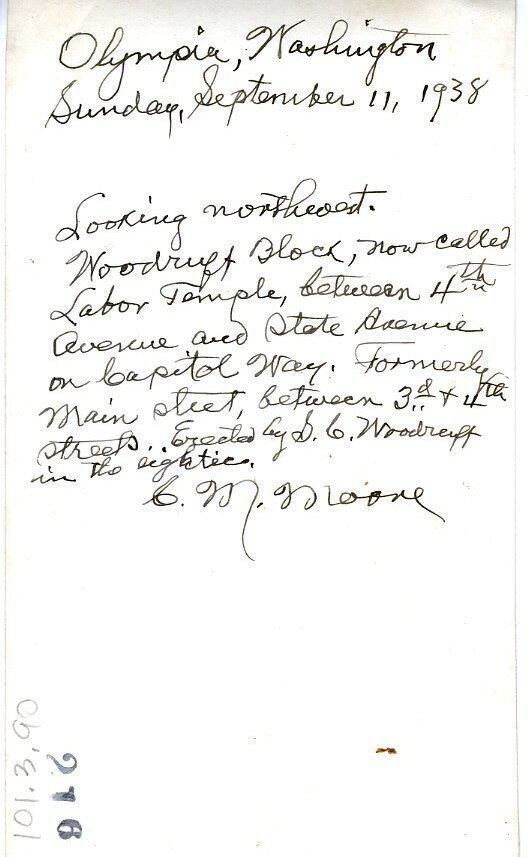 Olympia, Washington
Sunday, September 11, 1938
Looking northwest.
Woodruff Block, now called
Labor Temple, between 4th
Avenue and State Avenue
on Capitol Way. Formerly
Main street, between 3d & 4th
streets. Erected by S. C. Woodruff
in the eighties.
C. M. Moore
101.3.90
216